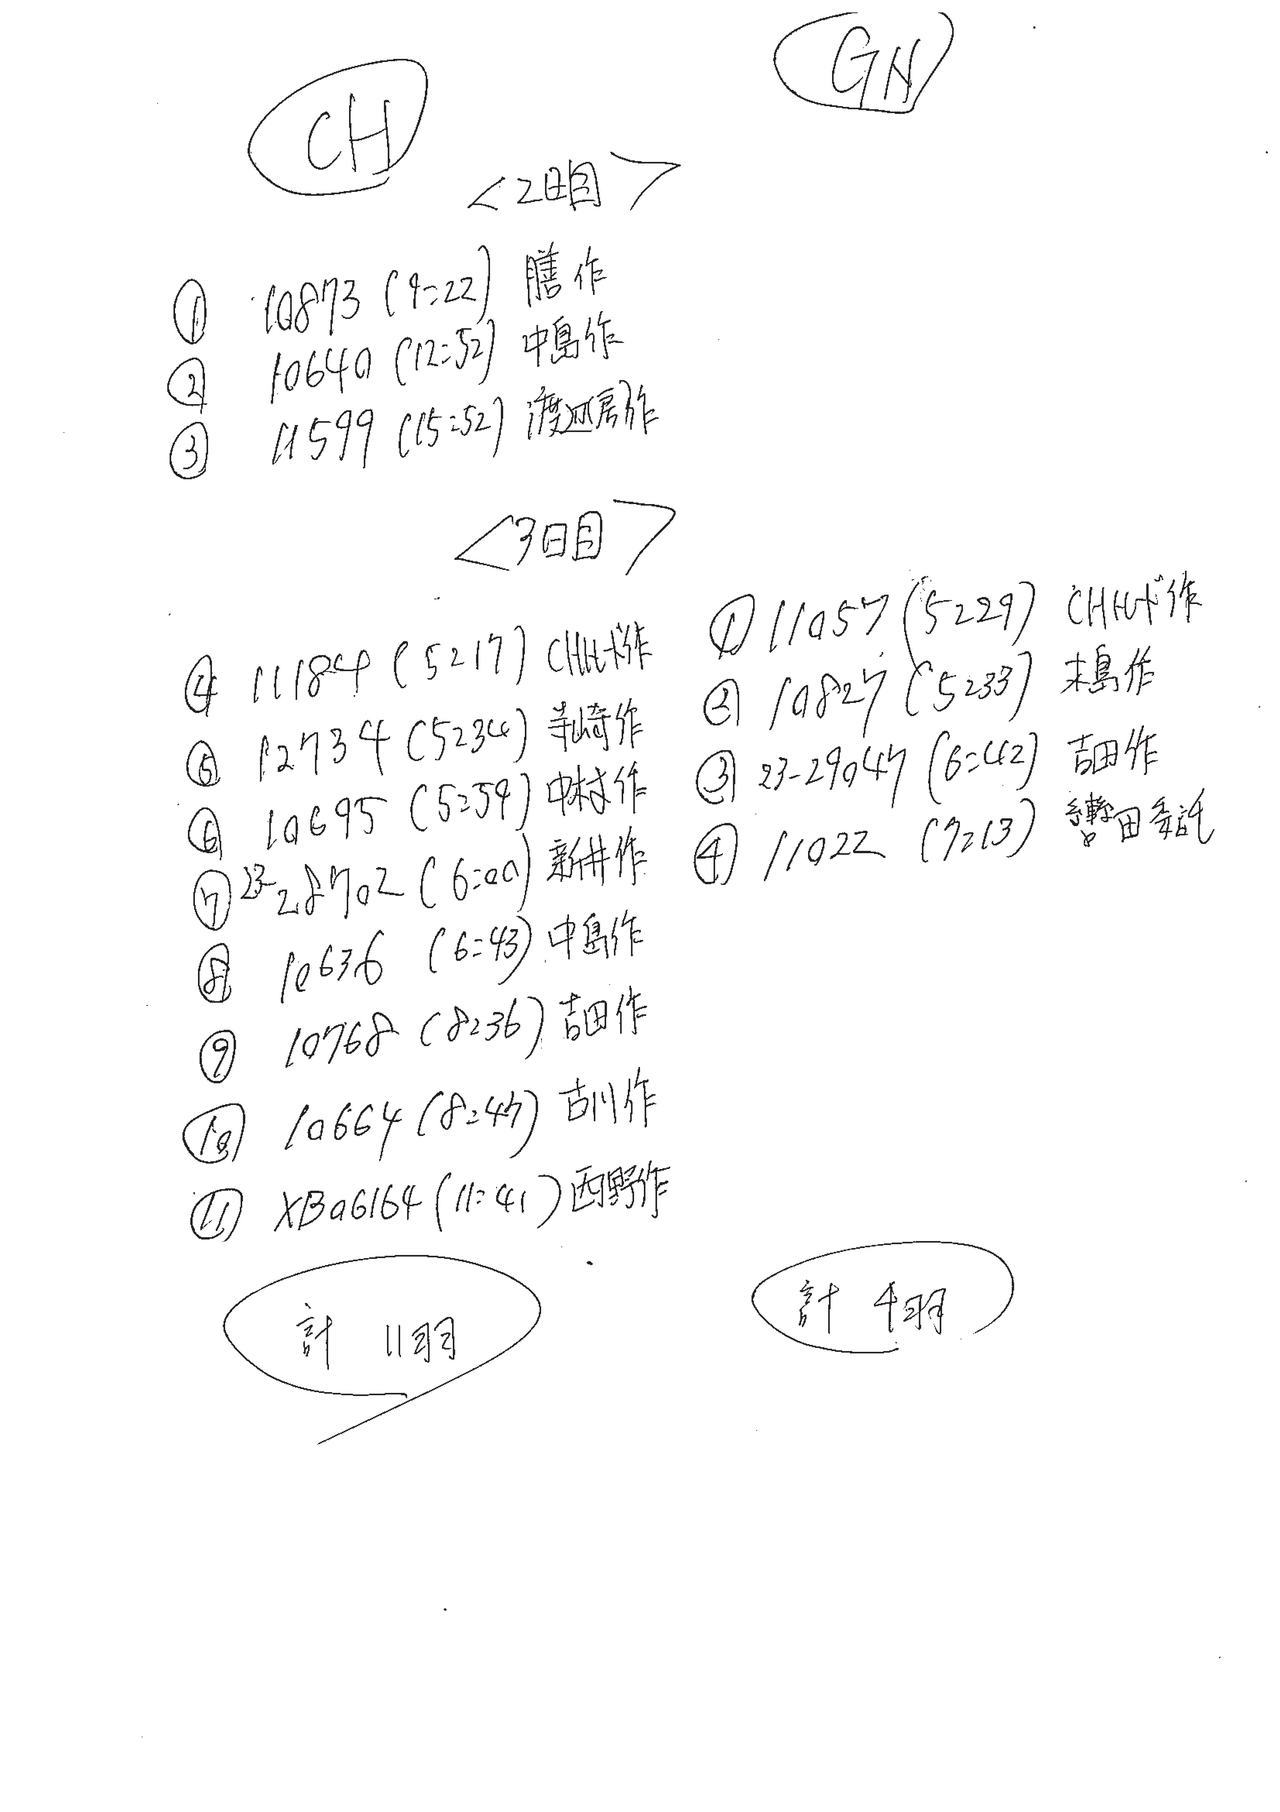 CH
GN
<2日目>
① 10873 (9:22) 膳作
② 10640 (12:52) 中島作
③ 11599 (15:52) 渡辺房作
<3日目>
④ 11184 (5:17) CHHルド作
⑤ 12734 (5:34) 寺崎作
⑥ 10695 (5:59) 中村作
⑦ 23-28702 (6:00) 新井作
⑧ 10636 (6:43) 中島作
⑨ 10768 (8:36) 吉田作
⑩ 10664 (8:47) 古川作
⑪ XB06164 (11:41) 西野作
計 11羽
① 11057 (5:29) CHHルド作
② 10827 (5:33) 木島作
③ 23-29047 (6:42) 吉田作
④ 11022 (7:13) 轡田委託
計 4羽